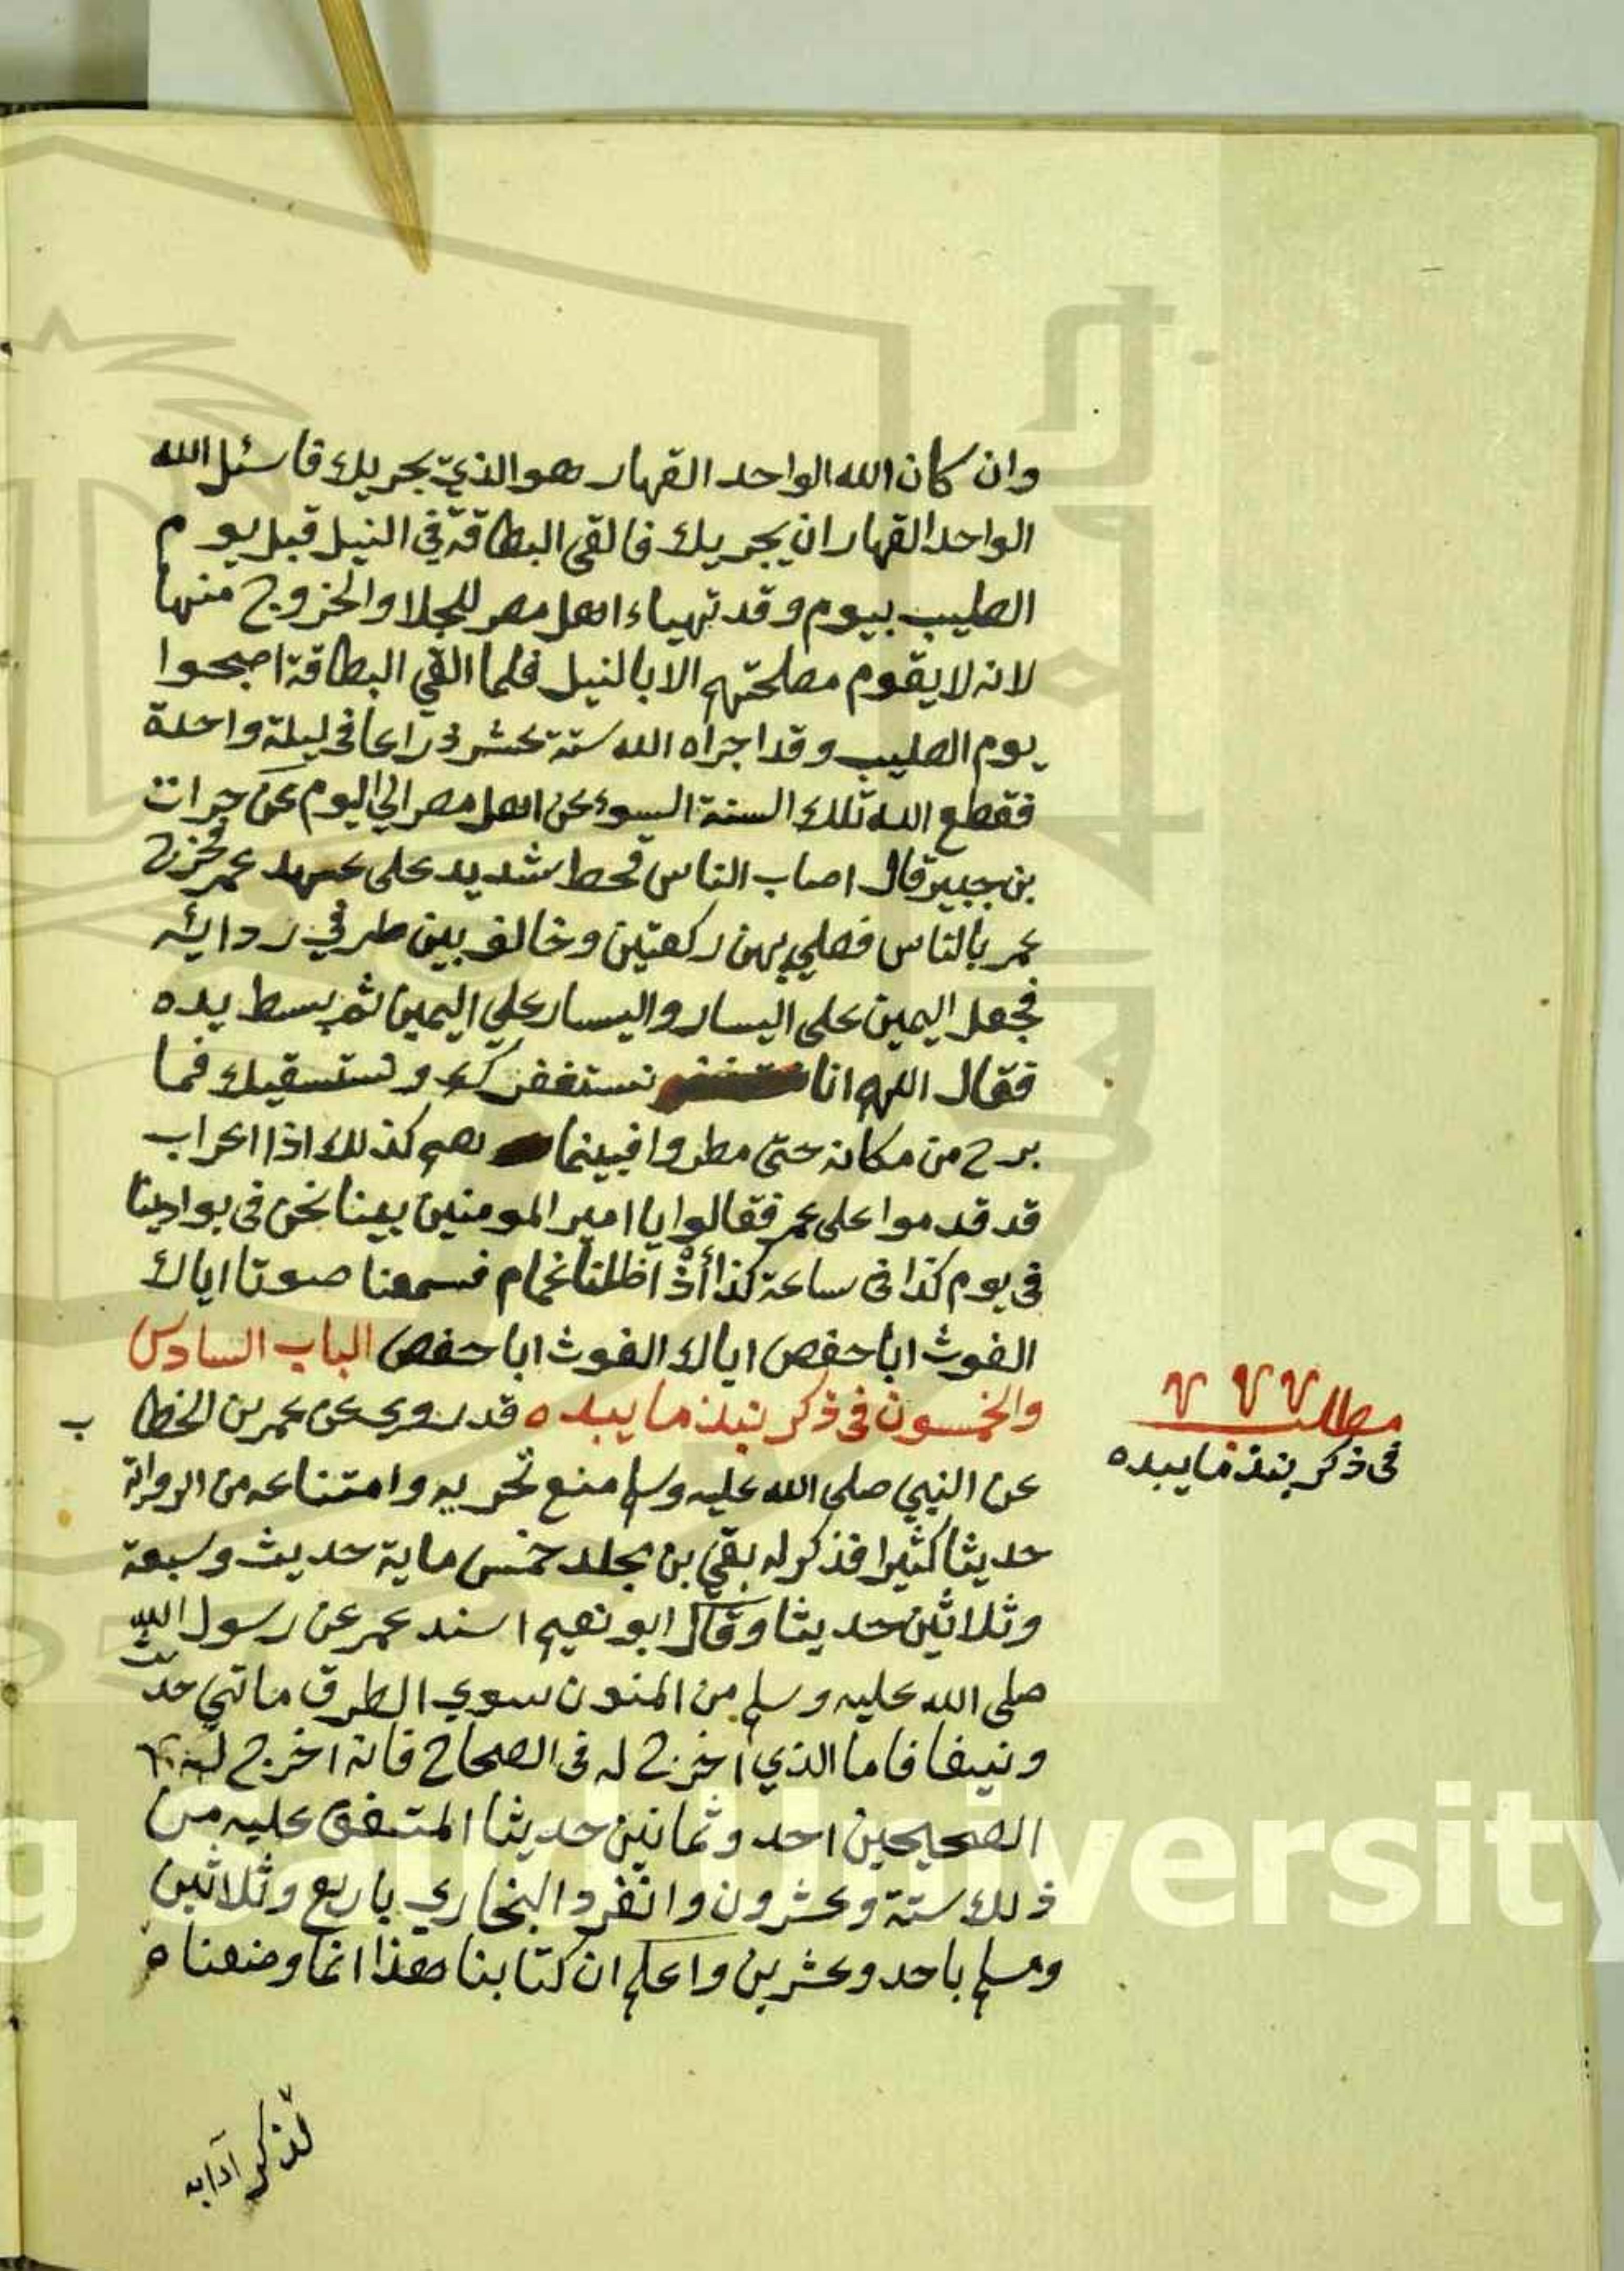 وان كان الله الواحد القهار هو الذي يجريك فاسئل الله
الواحد القهار ان يجريك فالقى البطاقة في النيل قبل يوم
الصليب بيوم وقد تهياء اهل مصر للجلا والخروج منها
لانه لا يقوم مصلحتهم الا بالنيل فلما القي البطاقة اصبحوا
يوم الصليب وقد اجراه الله ستة عشر ذراعا في ليلة واحدة
فقطع الله تلك السنة السوء عن اهل مصر الي اليوم عن جرات
بن جبير قال اصاب الناس قحط شديد على عهد عمر فخرج
عمر بالناس فصلي بهن ركعتين وخالف بين طرفي ردائه
فجعل اليمين على اليسار واليسار علي اليمين ثم بسط يده
فقال اللهم انا نستغفرك ونستسقيك فما
برح من مكانه حتى مطروا فبينما هم كذلك اذا اعراب
قد قدموا على عمر فقالوا يا امير المومنين بينا نحن في بوادينا
في يوم كذا في ساعة كذا أذ اظلنا غمام فسمعنا صوتا اياك
الغوث ابا حفص اياك الغوث ابا حفص الباب السادس
والخمسون في ذكر نبذ ما يبده قد روي عن عمر بن الخطا ب
عن النبي صلي الله عليه وسلم منع تحريه وامتناعه من الرواية
حديثا كثيرا فذكر له بقي بن مجلد خمس ماية حديث وسبعة
وثلاثين حديثا وقال ابو نعيم اسند عمر عن رسول الله
صلى الله عليه وسلم من المتون سوي الطرق ماتي حديث
ونيفا فاما الذي أخرج له في الصحاح فانه اخرج له في
الصحيحين احد وثمانين حديثا المتفق عليه من
ذلك ستة وعشرون وانفرد البخاري باربع وثلاثين
ومسلم باحد وعشرين واعلم ان كتابنا هذا انما وضعناه
مطلب
في ذكر نبذ ما يبده
لذكر آدابه
King Saud University